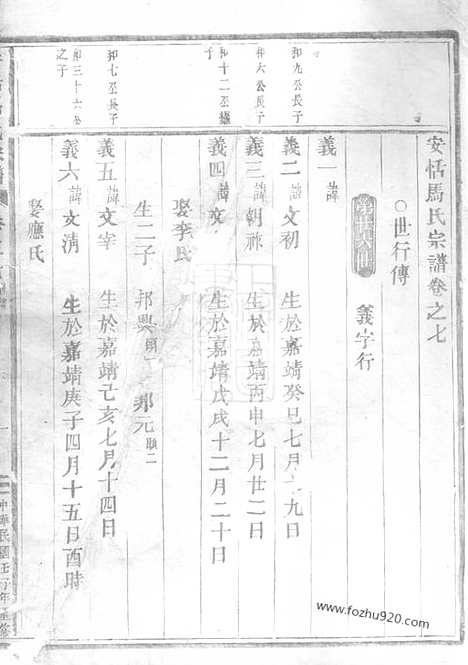 安恬馬氏宗譜卷之七
○世行傳
義字行
義一 諱
邦九公長子
義二 諱文初 生於嘉靖癸巳七月 九日
邦六公長子
義三 諱朝 生於嘉靖丙申七月廿二日
邦十二公 子
義四 諱文 生於嘉靖戊戌十二月二十日
娶李氏
生二子 邦興 邦元 順二
邦七公長子
義五 諱文宰 生於嘉靖己亥七月十四日
邦三十六公之子
義六 諱文清 生於嘉靖庚子四月十五日酉時
娶應氏
中華民國壬 年重修
www.fozhu920.com